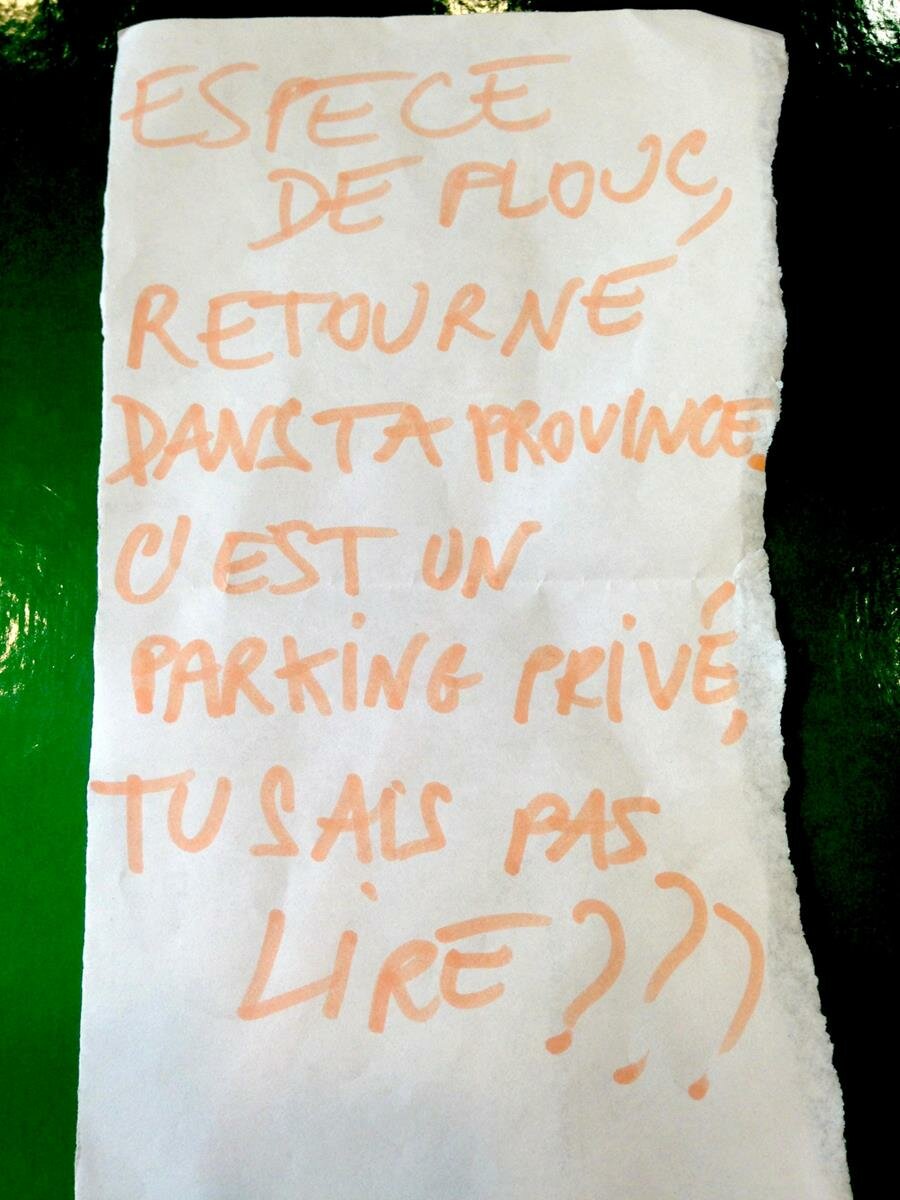 ESPECE
DE PLOUC,
RETOURNE
DANS TA PROVINCE.
C'EST UN
PARKING PRIVÉ,
TU SAIS PAS
LIRE???